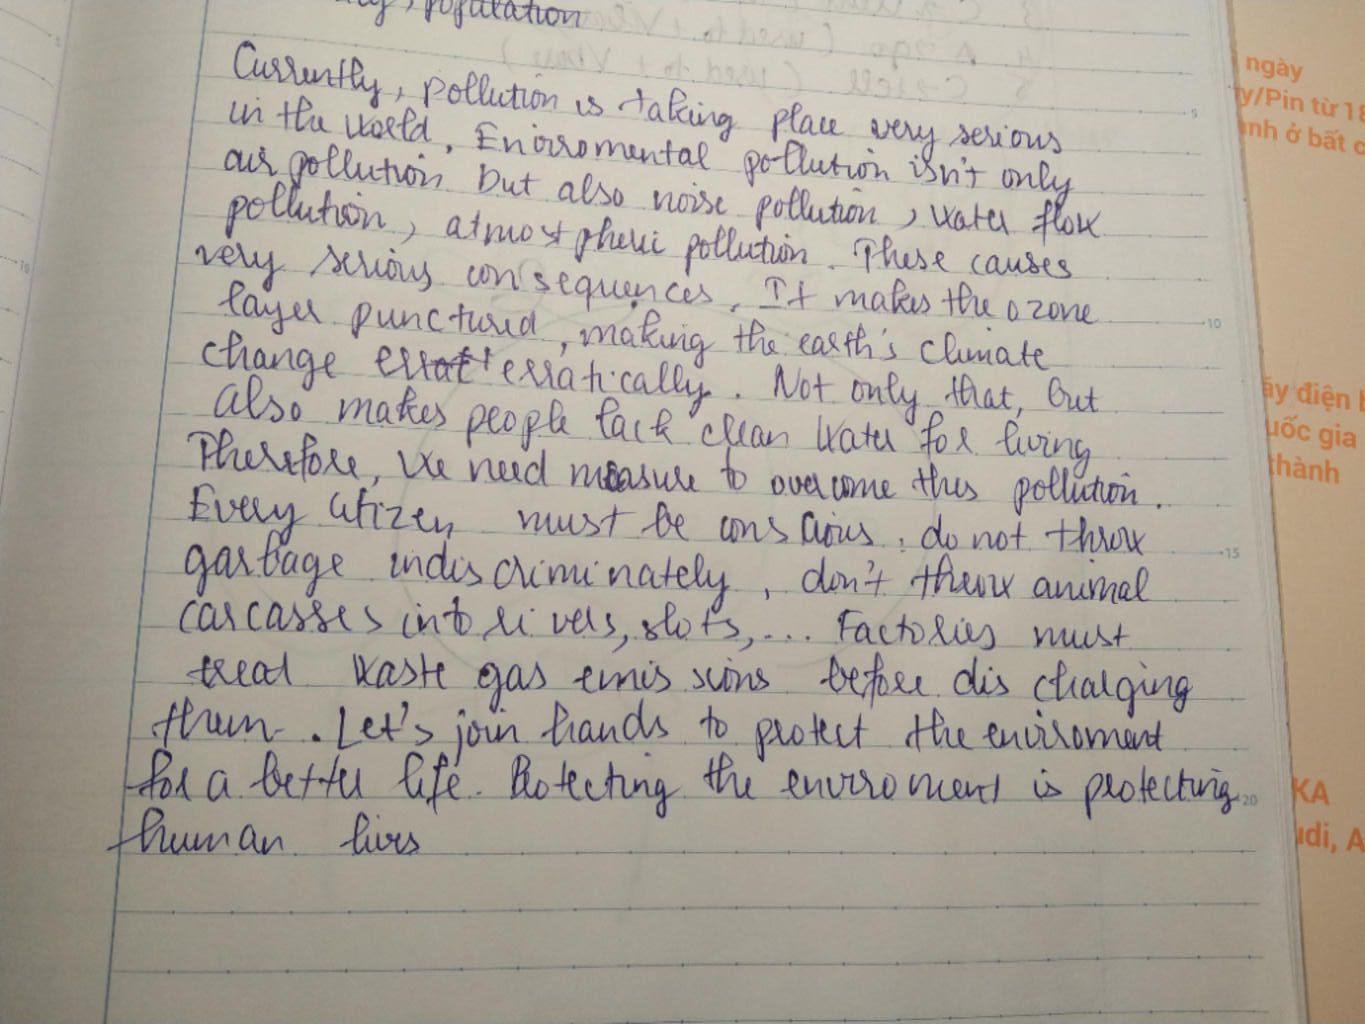 population
Currently, pollution is taking place very serious
in the world. Enviromental pollution isn't only
air pollution but also noise pollution, water flow
pollution, atmospheric pollution. These causes
very serious consequences. It makes the ozone
layer punctured, making the earth's climate
change errat erratically. Not only that, but
also makes people lack clean water for living
Therefore, we need measure to overcome this pollution.
Every citizen must be conscious. do not throw
garbage indiscriminately, don't throw animal
carcasses into rivers, slots,... Factories must
treat waste gas emissions before discharging
them. Let's join hands to protect the enviroment
for a better life. Protecting the enviroment is protecting
human lives
5
10
15
20
10
ngày
y/Pin từ 18
nh ở bất c
áy điện
uốc gia
thành
KA
udi, A